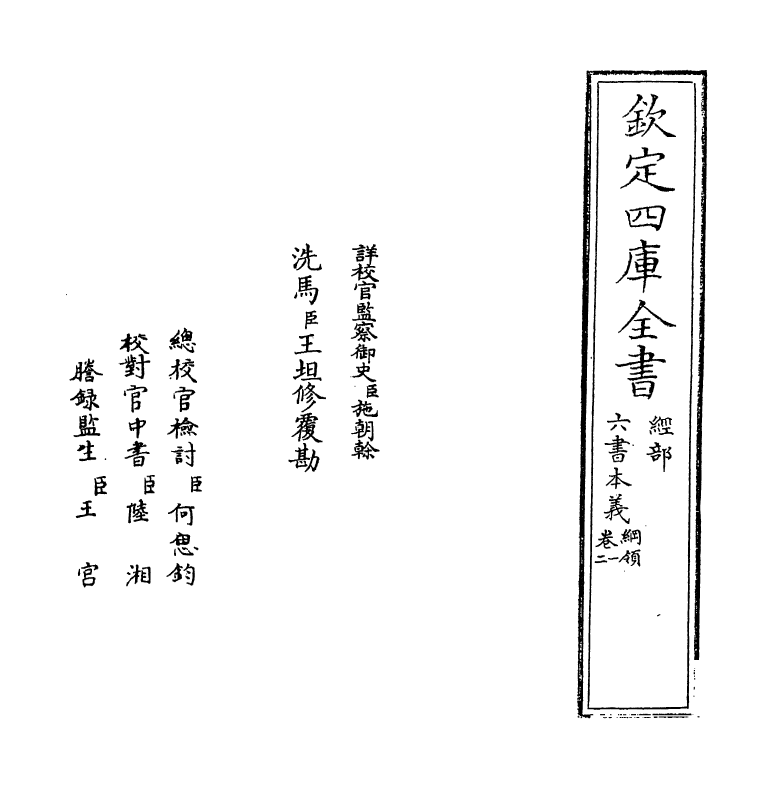 欽定四庫全書
經部
六書本義 綱領
卷一二
詳校官監察御史臣施朝榦
洗馬臣王坦修覆勘
總校官檢討臣何思鈞
校對官中書臣陸湘
謄錄監生臣王宫